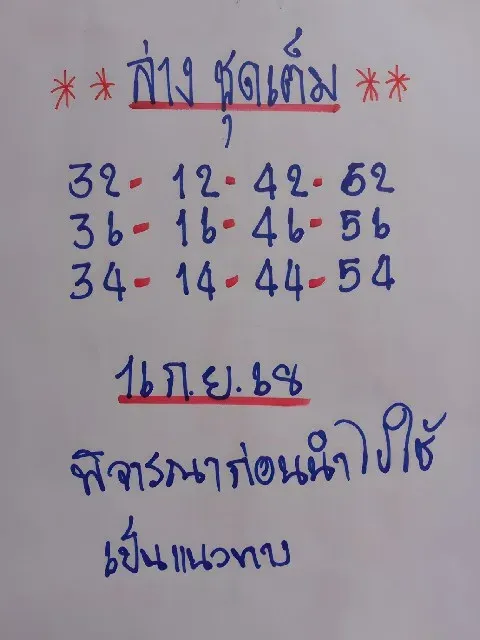 ** ล่าง ชุดเต็ม **
32 - 12 - 42 - 52
36 - 16 - 46 - 56
34 - 14 - 44 - 54
16 ก.ย. 68
พิจารณาก่อนนำไปใช้
เป็นแนวทาง